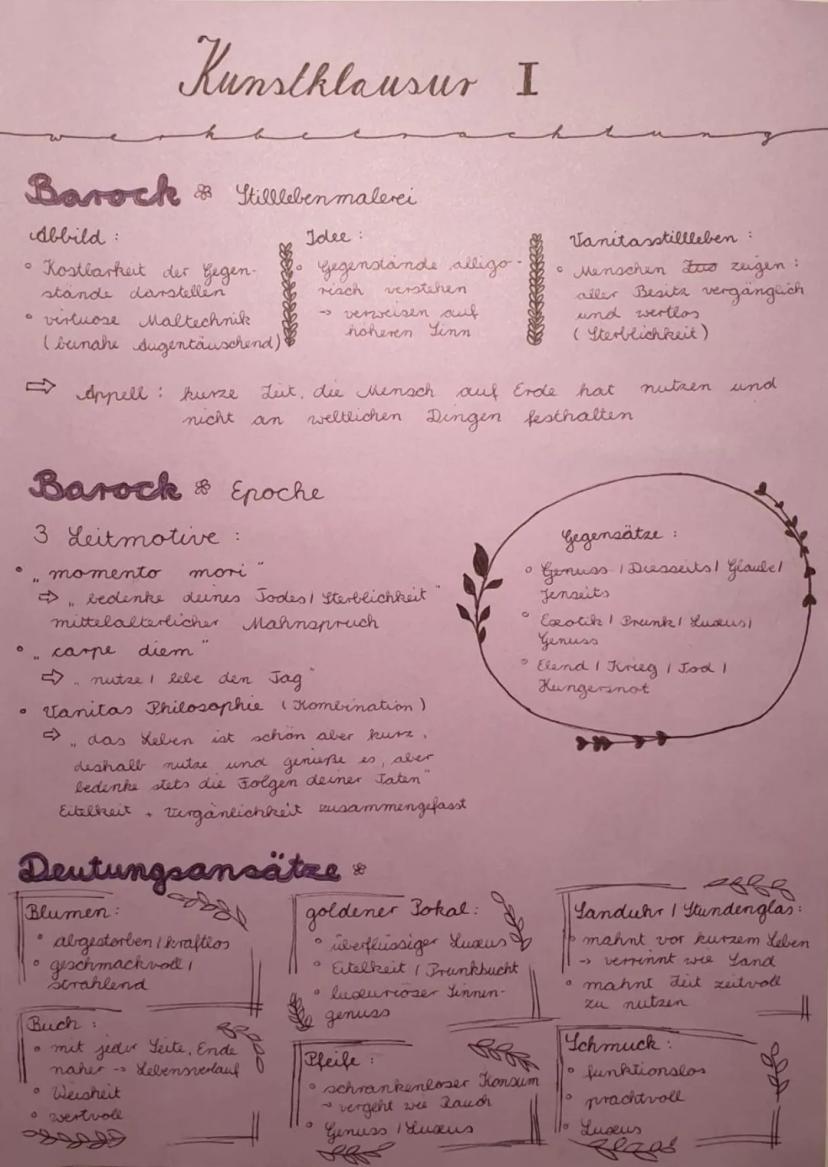 Kunstklausur I
werkbetrachtung
Barock Stilllebenmalerei
Abbild :
° Kostbarkeit der Gegen-
stände darstellen
° virtuose Maltechnik
(beinahe Augentäuschend)
Idee :
° Gegenstände alligo-
risch verstehen
→ verweisen auf
höheren Sinn
Vanitasstillleben :
° Menschen zeigen :
aller Besitz vergänglich
und wertlos
(Sterblichkeit)
⇨ Appell : kurze Zeit, die Mensch auf Erde hat nutzen und
nicht an weltlichen Dingen festhalten
Barock Epoche
3 Leitmotive :
• „momento mori"
⇨ „bedenke deines Todes / Sterblichkeit"
mittelalterlicher Mahnspruch
• „carpe diem"
⇨ „nutze / lebe den Tag"
• Vanitas Philosophie (Kombination)
⇨ „das Leben ist schön aber kurz,
deshalb nutze und genieße es, aber
bedenke stets die Folgen deiner Taten"
Eitelkeit + Vergänlichkeit zusammengefasst
Gegensätze :
° Genuss / Diesseits / Glaube /
Jenseits
° Exotik / Prunk / Luxus /
Genuss
° Elend / Krieg / Tod /
Hungersnot
Deutungsansätze
Blumen :
° abgestorben / kraftlos
° geschmackvoll /
strahlend
goldener Pokal :
° überflüssiger Luxus
° Eitelkeit / Prunkbucht
° luxuriöser Sinnen-
genuss
Sanduhr / Stundenglas :
° mahnt vor kurzem Leben
→ verrinnt wie Sand
° mahnt Zeit zeitvoll
zu nutzen
Buch :
° mit jeder Seite, Ende
naher → Lebensverlauf
° Weisheit
° wertvoll
Pfeife :
° schrankenloser Konsum
→ vergeht wie Rauch
° Genuss / Luxus
Schmuck :
° funktionslos
° prachtvoll
° Luxus